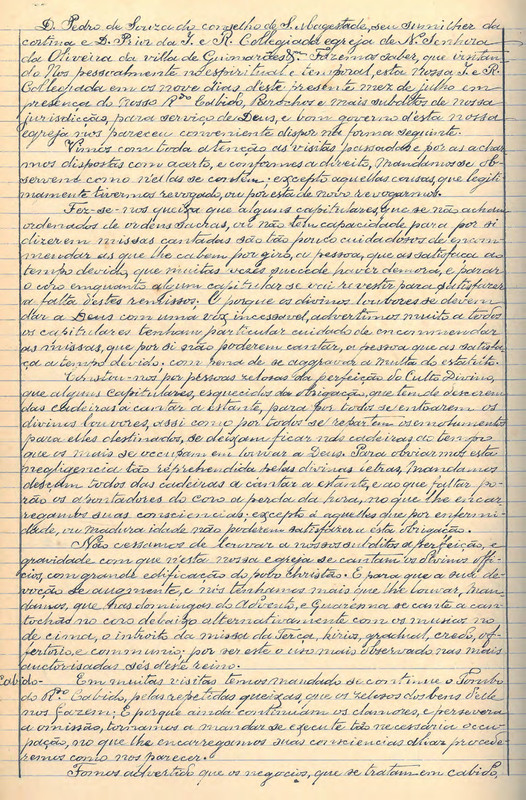 D. Pedro de Souza do conselho de S. Magestade, seu sumilher da
cortina e D. Prior da I. e R. Collegiada egreja de N. Senhora
da Oliveira da villa de Guimarães &ª. Fazemos saber, que visitan-
do Nos pessoalmente no espiritual e temporal, esta Nossa I. e R.
Collegiada em os nove dias, d'este presente mez de julho em
presença do nosso Rdo Cabido, Beneficios e mais subditos de nossa
jurisdicção, para serviço de Deus, e bom governo d'esta nossa
egreja nos pareceu conveniente dispor na forma seguinte.
Vimos com toda attenção as visitas passadas e por as achar-
mos dispostas com acerto, e conformes a direito, mandamos se ob-
servem como n'ellas se contem: excepto aquellas cousas, que legiti-
mamente tivermos revogado, ou por esta de novo revogarmos.
Fez-se-nos queixa que alguns capitulares, que se não acham
ordenados de ordens sacras, ou não tem capacidade para por si
dizerem missas cantadas são tão pouco cuidadosos de encom-
mendar as que lhe cabem por giro, a pessoa, que as satisfaça ao
tempo devido, que muitas vezes succede haver demora, e parar
o coro emquanto algum capitular se vai revestir para satisfazer
a falta d'estes remissos. E porque os divinos louvores se devem
dar a Deus com uma voz incessavel, advertimos muito a todos
os capitulares tenham particular cuidado de encommendar
as missas, que por si não poderem cantar, a pessoa que as satisfa-
ça a tempo devido, com pena de se aggravar a multa do estatuto.
Constou-nos por pessoas zelosas da perfeição do Culto Divino,
que alguns capitulares, esquecidos da obrigação, que tem de descerem
das cadeiras a cantar á estante, para por todos se entoarem os
divinos louvores, assi como por todos se repartem os emolumentos
para elles destinados, se deixam ficar nas cadeiras ao tempo
que os mais se occupam em louvar a Deus. Para obviarmos esta
negligencia tão reprehendida pelas divinas letras, Mandamos
desçam todos das cadeiras a cantar á estante, e ao que faltar po-
rão os apontadores do coro a perda da hora, no que lhe encar-
regamos suas consciencias; excepto á aquelles que por enfermi-
dade, ou madura idade não poderem satisfazer a esta obrigação.
Não cessamos de louvar a nossos subditos a perfeição, e
gravidade com que n'esta nossa egreja se cantam os Divinos Offi-
cios, com grande edificação do povo Christão. E para que a sua de-
voção se augmente, e nós tenhamos mais que lhe louvar, man-
damos, que nas domingas do Advento, e Quaresma se cante a can-
tochão no coro debaixo alternativamente com os musicos no
de cima, o introito da missa da Terça, kirios, gradual, credo, of-
fertorio, e communio, por ser este o uso mais observado nas mais
auctorisadas sés d'este reino.
Cabido- Em muitas visitas temos mandado se continue o Tombo
do Rdo Cabido, pelas repetidas queixas, que os zelosos dos bens d'elle
nos fazem; E porque ainda continuam os clamores, e persevera
a omissão, tornamos a mandar se execute tão necessaria occu-
pação, no que lhe encarregamos suas consciencias, alias procede-
remos como nos parecer.
Fomos advertido que os negocios, que se tratam em cabido,